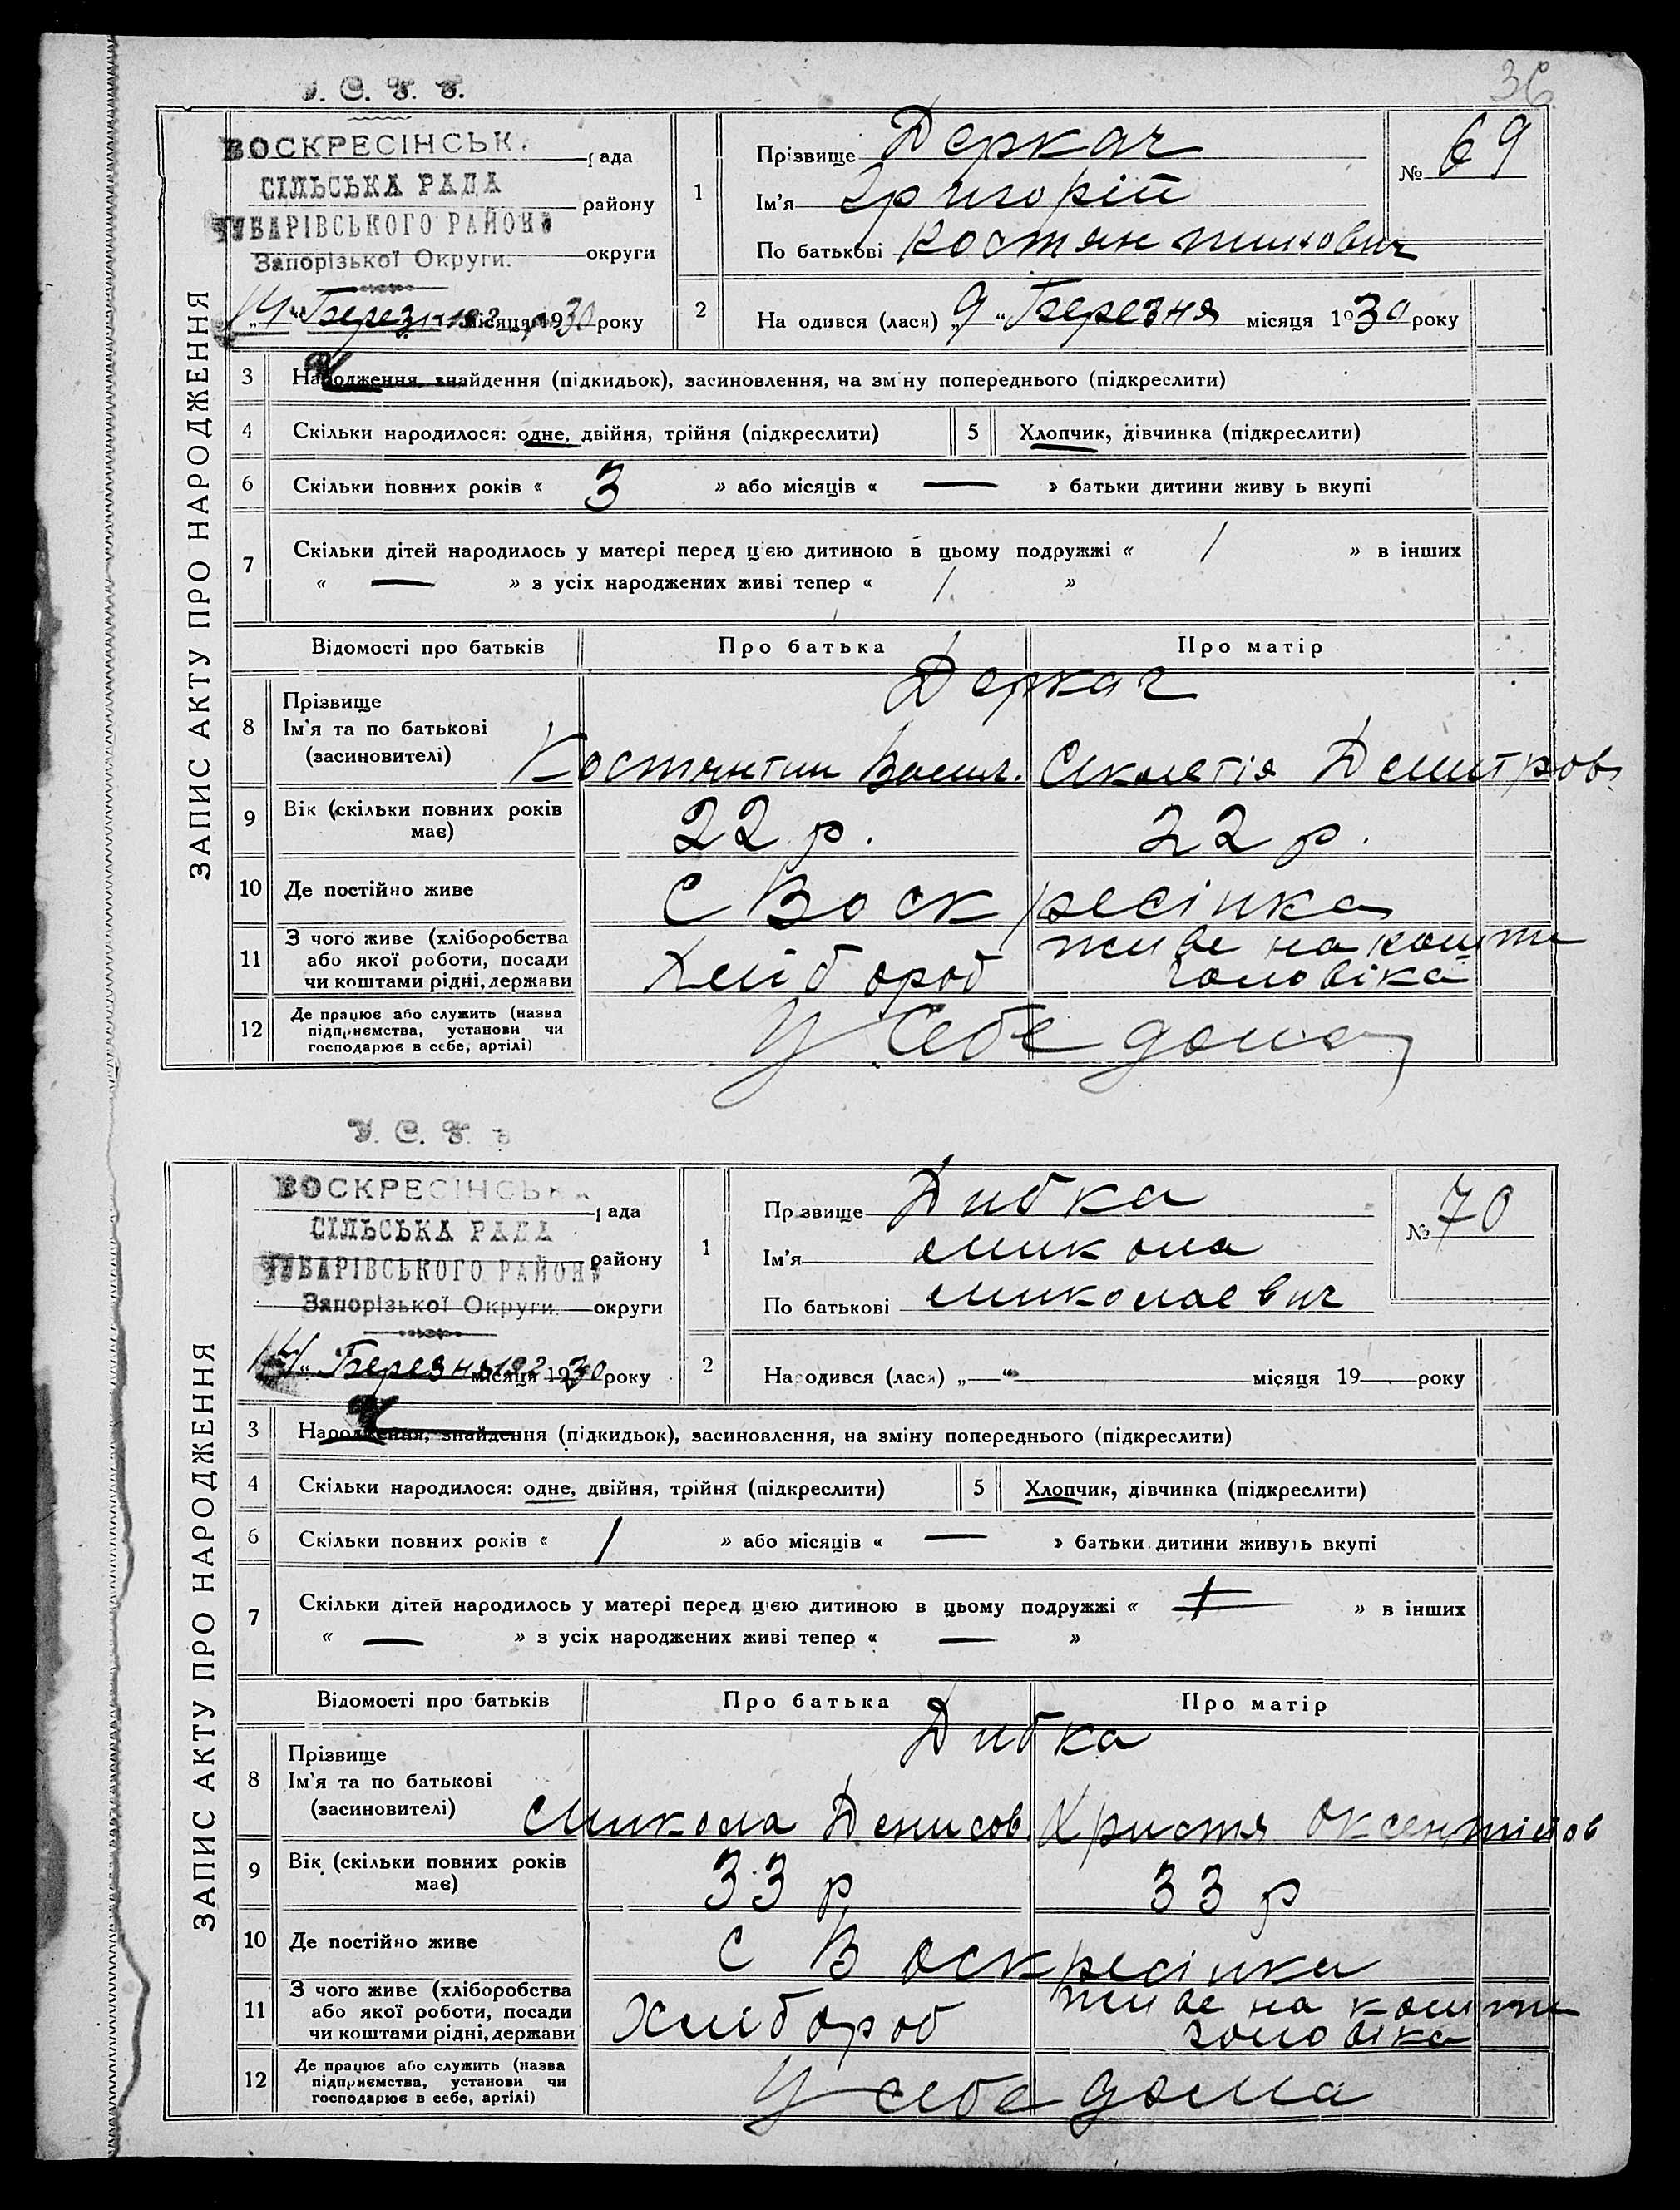 36
У. С. Р. Р.
ВОСКРЕСІНСЬК.
рада
СІЛЬСЬКА РАДА
району
ЧУБАРІВСЬКОГО РАЙОНУ
Запорізької Округи.
округи
14 " Березня місяця 1930 року
Прізвище Деркач
№ 69
1
Ім'я Григорій
По батькові Костянтинович
2
Народився (лася) „ 9 " Березня місяця 1930 року
ЗАПИС АКТУ ПРО НАРОДЖЕННЯ
3 Народження, знайдення (підкидьок), засиновлення, на зміну попереднього (підкреслити)
4 Скільки народилося: одне, двійня, трійня (підкреслити) 5 Хлопчик, дівчинка (підкреслити)
6 Скільки повних років « 3 » або місяців « — » батьки дитини живуть вкупі
7 Скільки дітей народилось у матері перед цією дитиною в цьому подружжі « 1 » в інших
« — » з усіх народжених живі тепер « 1 »
Відомості про батьків Про батька Про матір
8 Прізвище Деркач
Ім'я та по батькові
(засиновителі) Костянтин Васил. Дмитров.
9 Вік (скільки повних років має) 22 р. 22 р.
10 Де постійно живе С Воскресінка
11 З чого живе (хліборобства
або якої роботи, посади
чи коштами рідні, держави Хлібороб живе на кошти
чоловіка
12 Де працює або служить (назва
підприємства, установи чи
господарює в себе, артілі) У себе дома
У. С. Р. Р.
ВОСКРЕСІНСЬКА
рада
СІЛЬСЬКА РАДА
району
ЧУБАРІВСЬКОГО РАЙОНУ
Запорізької Округи.
округи
14 " Березня місяця 1930 року
Прізвище Дибка
№ 70
1
Ім'я Микола
По батькові Миколаєвич
2
Народився (лася) „ — " місяця 19 — року
ЗАПИС АКТУ ПРО НАРОДЖЕННЯ
3 Народження, знайдення (підкидьок), засиновлення, на зміну попереднього (підкреслити)
4 Скільки народилося: одне, двійня, трійня (підкреслити) 5 Хлопчик, дівчинка (підкреслити)
6 Скільки повних років « 1 » або місяців « — » батьки дитини живуть вкупі
7 Скільки дітей народилось у матері перед цією дитиною в цьому подружжі « — » в інших
« — » з усіх народжених живі тепер « — »
Відомості про батьків Про батька Про матір
8 Прізвище Дибка
Ім'я та по батькові
(засиновителі) Микола Денисов. Христя Оксентійов
9 Вік (скільки повних років має) 33 р 33 р
10 Де постійно живе С Воскресінка
11 З чого живе (хліборобства
або якої роботи, посади
чи коштами рідні, держави Хлібороб живе на кошти
чоловіка
12 Де працює або служить (назва
підприємства, установи чи
господарює в себе, артілі) У себе дома